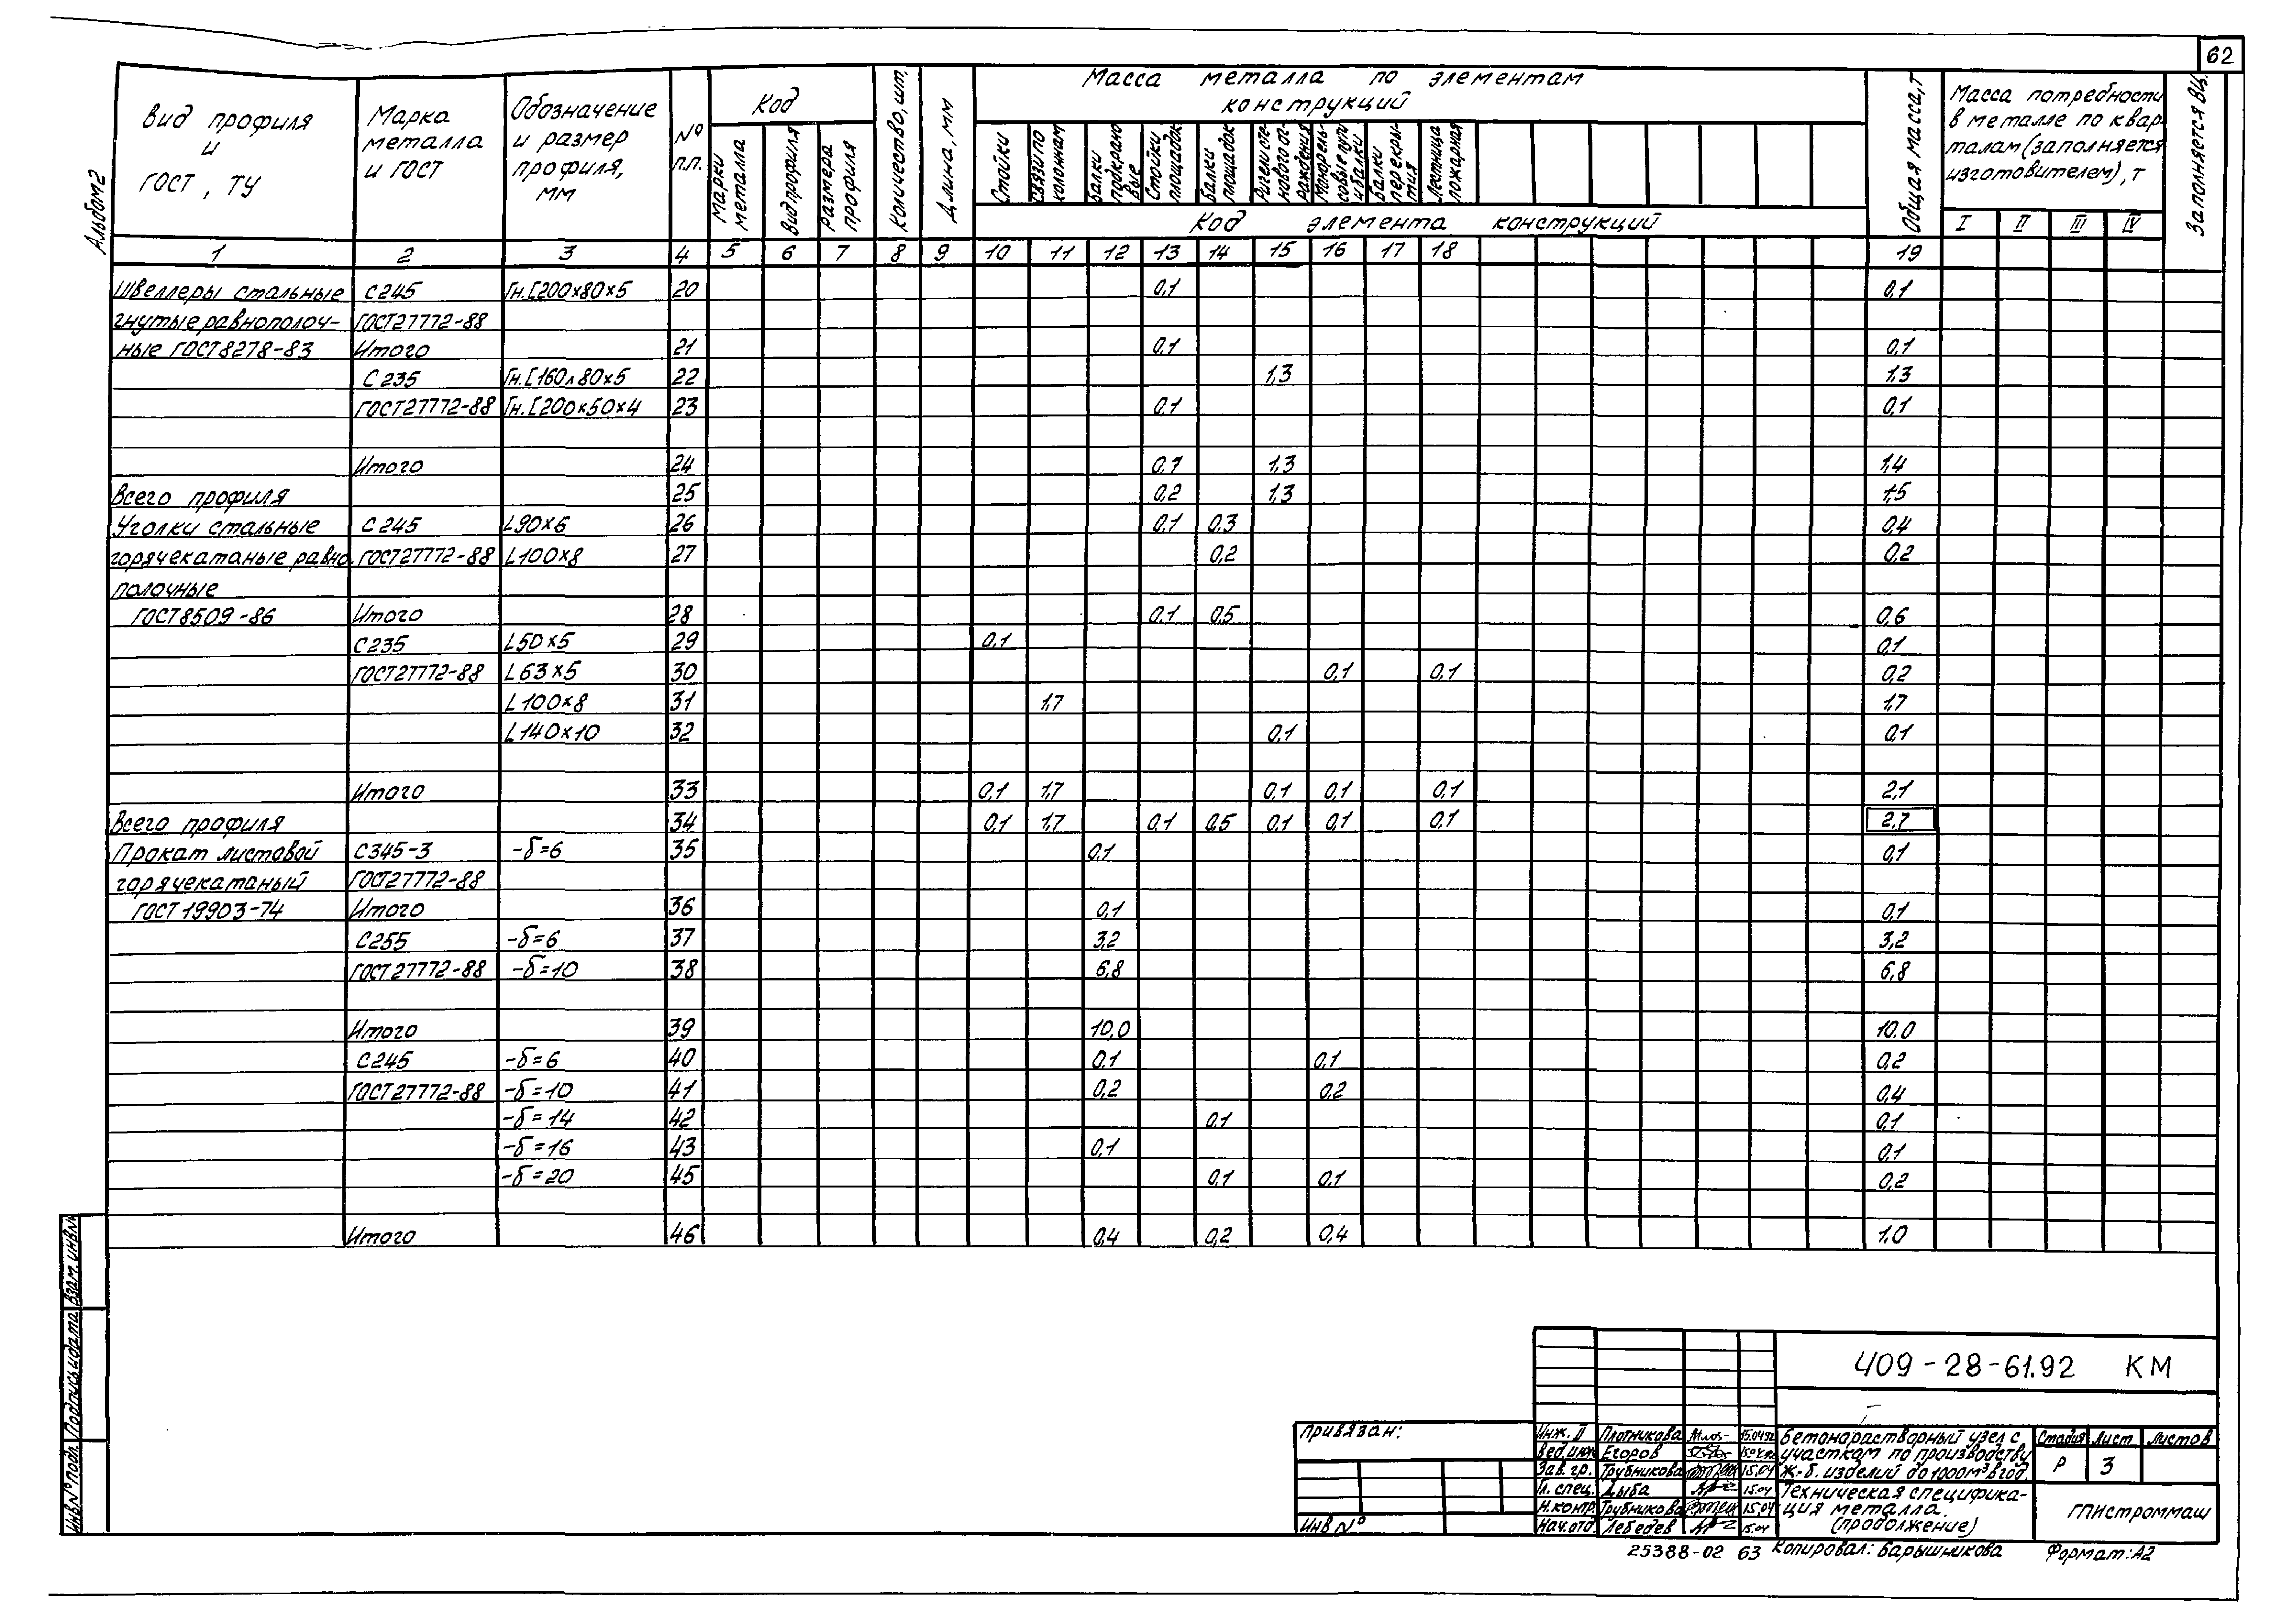 62
Альбом 2
Вид профиля и ГОСТ, ТУ
Марка металла и ГОСТ
Обозначение и размер профиля, мм
№ п.п.
Код
Марки металла
Вид профиля
Размера профиля
Количество, шт.
Длина, мм
Масса металла по элементам конструкций
Стойки
Связи по колоннам
Балки подкрановые
Стойки площадок
Балки площадок
Ригели стенового ограждения
Монорельсовые пути и балки
Балки перекрытия
Лестница пожарная
Код элемента конструкций
Общая масса, т
Масса потребности в металле по кварталам (заполняется изготовителем), т
I II III IV
Заполняется ВЦ
1 2 3 4 5 6 7 8 9 10 11 12 13 14 15 16 17 18 19
Швеллеры стальные С245 Гн.[200×80×5 20 0,1 0,1
гнутые равнополоч- ГОСТ27772-88
ные ГОСТ8278-83 Итого 21 0,1 0,1
С235 Гн.[160×80×5 22 1,3 1,3
ГОСТ27772-88 Гн.[200×50×4 23 0,1 0,1
Итого 24 0,1 1,3 1,4
Всего профиля 25 0,2 1,3 1,5
Уголки стальные С245 L90×6 26 0,1 0,3 0,4
горячекатаные равно- ГОСТ27772-88 L100×8 27 0,2 0,2
полочные
ГОСТ8509-86 Итого 28 0,1 0,5 0,6
С235 L50×5 29 0,1 0,1
ГОСТ27772-88 L63×5 30 0,1 0,1 0,2
L100×8 31 1,7 1,7
L140×10 32 0,1 0,1
Итого 33 0,1 1,7 0,1 0,1 0,1 2,1
Всего профиля 34 0,1 1,7 0,1 0,5 0,1 0,1 0,1 2,7
Прокат листовой С345-3 -δ=6 35 0,1 0,1
горячекатаный ГОСТ27772-88
ГОСТ 19903-74 Итого 36 0,1 0,1
С255 -δ=6 37 3,2 3,2
ГОСТ27772-88 -δ=10 38 6,8 6,8
Итого 39 10,0 10.0
С245 -δ=6 40 0,1 0,1 0,2
ГОСТ27772-88 -δ=10 41 0,2 0,2 0,4
-δ=14 42 0,1 0,1
-δ=16 43 0,1 0,1
-δ=20 45 0,1 0,1 0,2
Итого 46 0,4 0,2 0,4 1,0
Взам. инв №
Подпись и дата
Инв № подл.
409-28-61.92 КМ
Привязан:
Инв №
Инж. II Плотникова 15.04.92
Вед. инж Егоров
Зав. гр. Трубникова 15.04
Гл. спец. Дыба 15.04
Н.контр. Трубникова 15.04
Нач.отд. Лебедев 15.04
Бетонарастворный узел с
участкам по производству
ж.-б. изделий до 1000м³ в год.
Стадия Лист Листов
Р 3
Техническая специфика-
ция металла.
(продолжение)
ГПИстроммаш
25388-02 63 Копировал: Барышникова Формат: А2